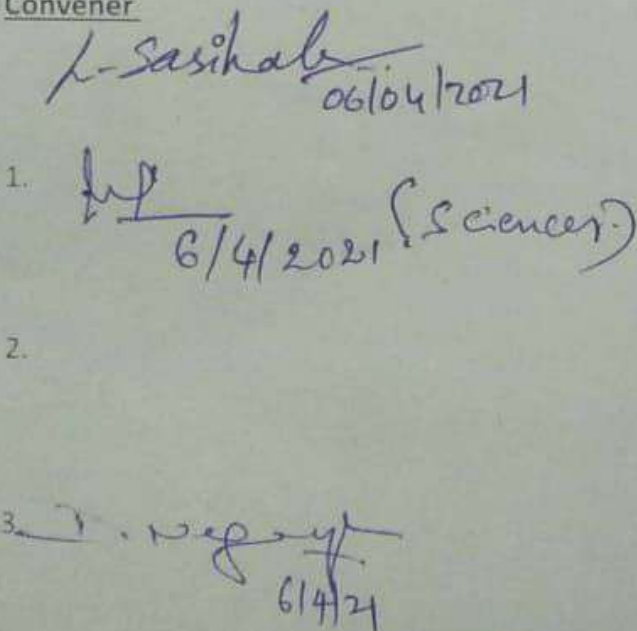 Convener
L-Sasikala
06/04/2021
1.
6/4/2021 (Sciences)
2.
3.
6/4/21